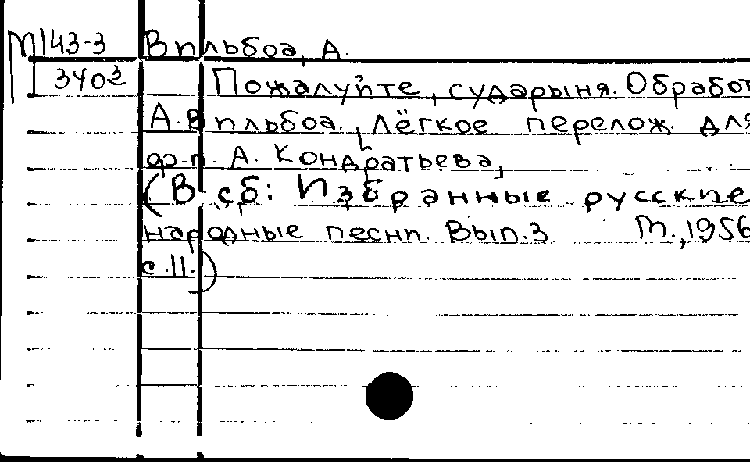 М 143-3 Вильбоа, А.
3403 Пожалуйте, сударыня. Обработ
А. Вильбоа, Лёгкое перелож. для
ф-п. А. Кондратьева,
(В сб: Избранные русские
народные песни. Вып.3 М., 1956
с.11.)